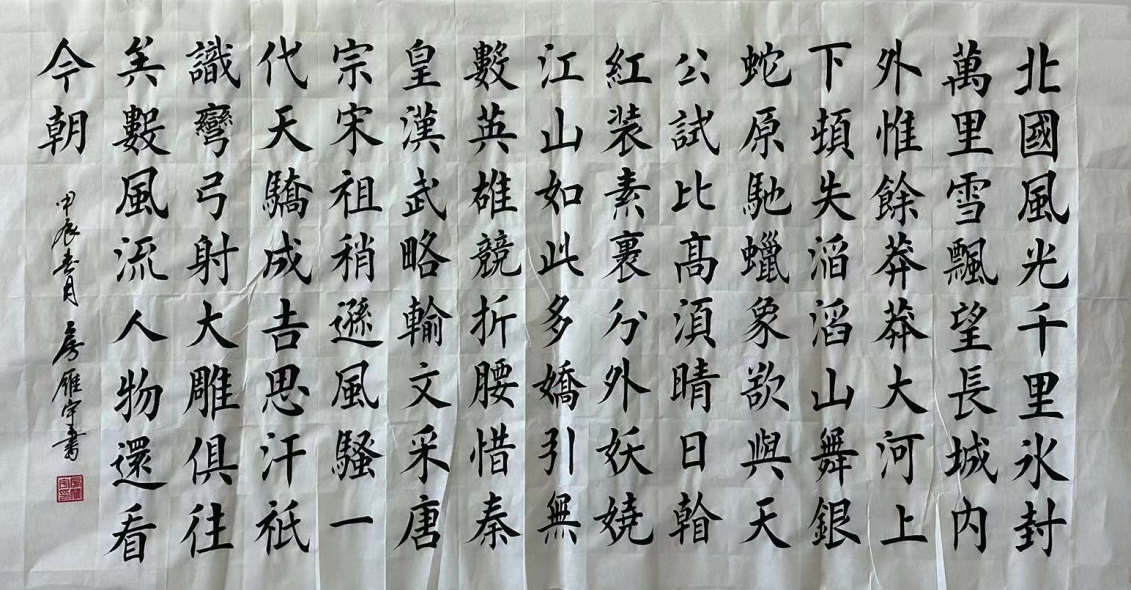 北國風光千里氷封
萬里雪飄望長城内
外惟餘莽莽大河上
下頓失滔滔山舞銀
蛇原馳蠟象欲與天
公試比髙須晴日看
紅装素裹分外妖嬈
江山如此多嬌引無
數英雄競折腰惜秦
皇漢武略輸文采唐
宗宋祖稍遜風騷一
代天驕成吉思汗祇
識彎弓射大雕俱往
矣數風流人物還看
今朝
甲辰春月 房雁宇書